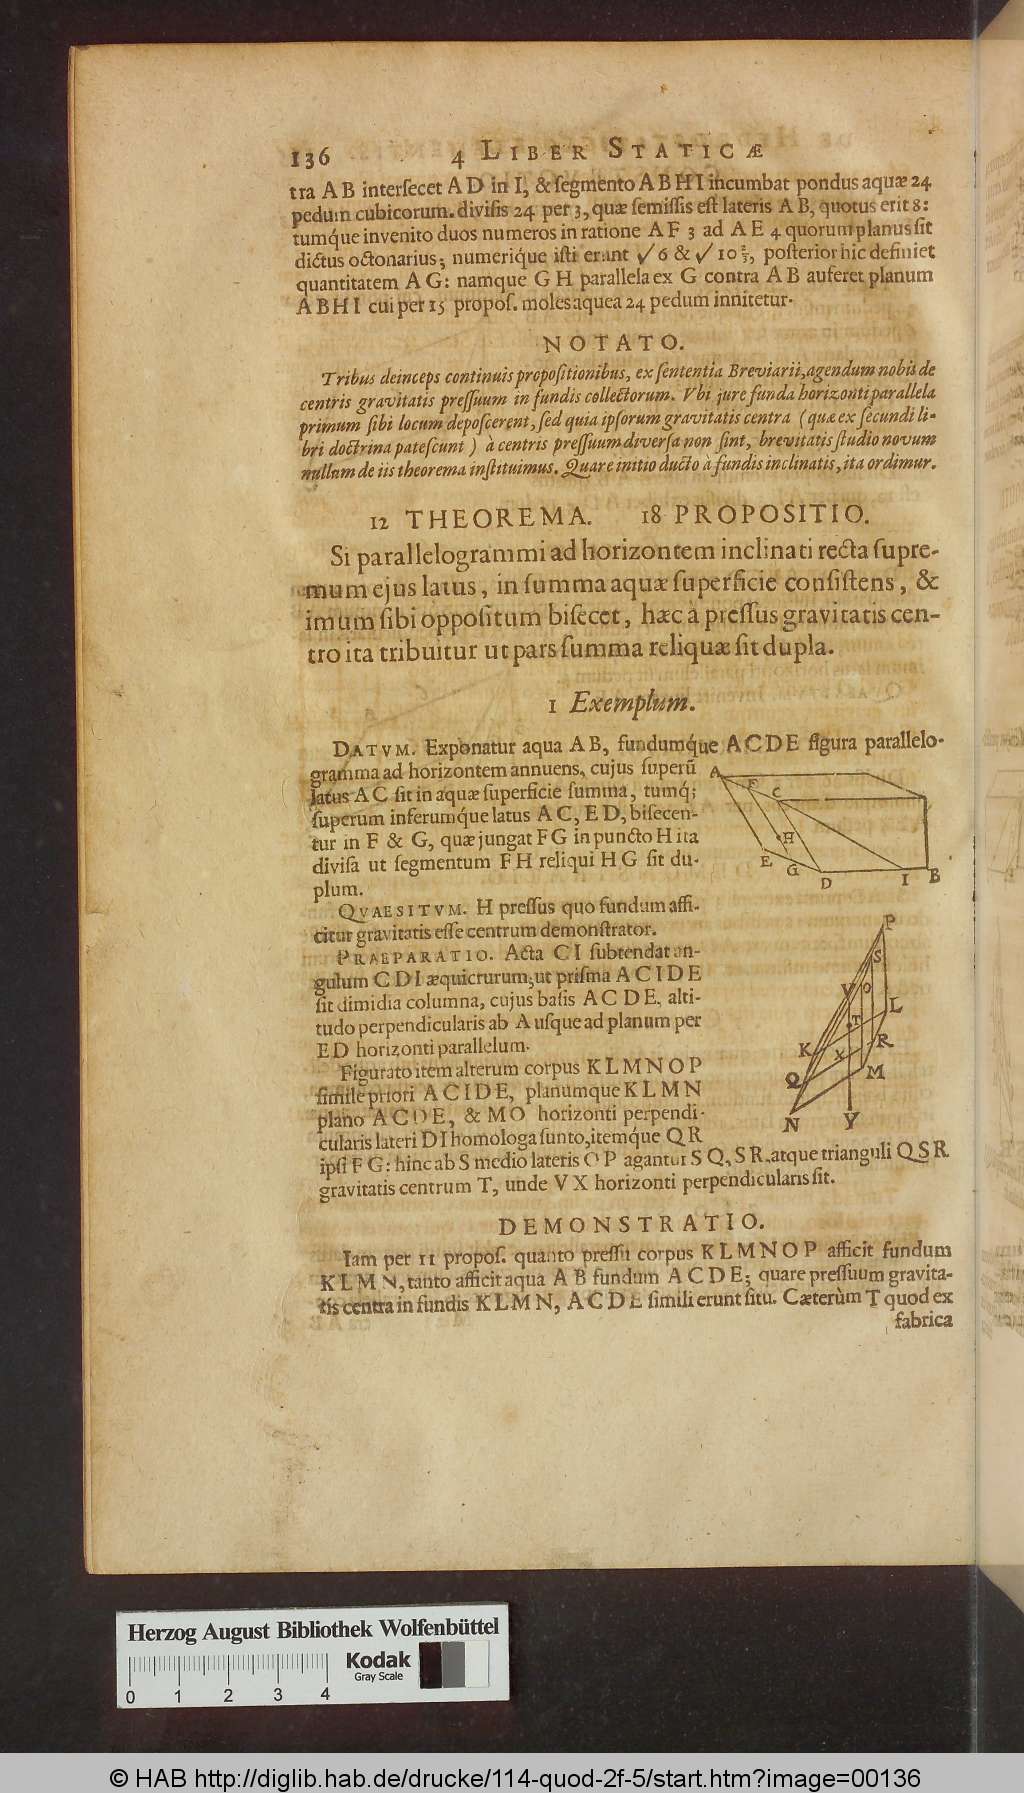 136 4 LIBER STATICÆ
tra A B interſecet A D in I, & ſegmento A B H I incumbat pondus aquæ 24
pedum cubicorum. diviſis 24 per 3, quæ ſemiſſis eſt lateris A B, quotus erit 8:
tumq́ue invenito duos numeros in ratione A F 3 ad A E 4 quorum planus ſit
dictus octonarius; numeriq́ue iſti erunt √ 6 & √ 10 2/3, poſterior hic definiet
quantitatem A G: namque G H parallela ex G contra A B auferet planum
A B H I cui per 15 propoſ. moles aquea 24 pedum innitetur.
NOTATO.
Tribus deinceps continuis propoſitionibus, ex ſententia Breviarii, agendum nobis de
centris gravitatis preſſuum in fundis collectorum. Vbi jure funda horizonti parallela
primum ſibi locum depoſcerent, ſed quia ipſorum gravitatis centra (quæ ex ſecundi li-
bri doctrina pateſcunt) à centris preſſuum diverſa non ſint, brevitatis ſtudio novum
nullum de iis theorema inſtituimus. Quare initio ducto à fundis inclinatis, ita ordimur.
12 THEOREMA. 18 PROPOSITIO.
Si parallelogrammi ad horizontem inclinati recta ſupre-
mum ejus latus, in ſumma aquæ ſuperficie conſiſtens, &
imum ſibi oppoſitum biſecet, hæc à preſſus gravitatis cen-
tro ita tribuitur ut pars ſumma reliquæ ſit dupla.
1 Exemplum.
DATVM. Exponatur aqua A B, fundumq́ue A C D E figura parallelo-
gramma ad horizontem annuens, cujus ſuperũ
latus A C ſit in aquæ ſuperficie ſumma, tumq́;
ſuperum inferumq́ue latus A C, E D, biſecen-
tur in F & G, quæ jungat F G in puncto H ita
diviſa ut ſegmentum F H reliqui H G ſit du-
plum.
QVAESITVM. H preſſus quo fundum affi-
citur gravitatis eſſe centrum demonſtrator.
PRAEPARATIO. Acta C I ſubtendat an-
gulum C D I æquicrurum, ut priſma A C I D E
ſit dimidia columna, cujus baſis A C D E, alti-
tudo perpendicularis ab A uſque ad planum per
E D horizonti parallelum.
Figurato item alterum corpus K L M N O P
ſimile priori A C I D E, planumque K L M N
plano A C D E, & M O horizonti perpendi-
cularis lateri D I homologa ſunto, itemq́ue Q R
ipſi F G: hinc ab S medio lateris O P agantur S Q, S R, atque trianguli Q S R
gravitatis centrum T, unde V X horizonti perpendicularis ſit.
A F C H E G D I B
P S V O L T K X R Q M N Y
DEMONSTRATIO.
Iam per 11 propoſ. quanto preſſu corpus K L M N O P afficit fundum
K L M N, tanto afficit aqua A B fundum A C D E; quare preſſuum gravita-
tis centra in fundis K L M N, A C D E ſimili erunt ſitu. Cæterùm T quod ex
fabrica
Herzog August Bibliothek Wolfenbüttel
Kodak
Gray Scale
0 1 2 3 4
© HAB http://diglib.hab.de/drucke/114-quod-2f-5/start.htm?image=00136